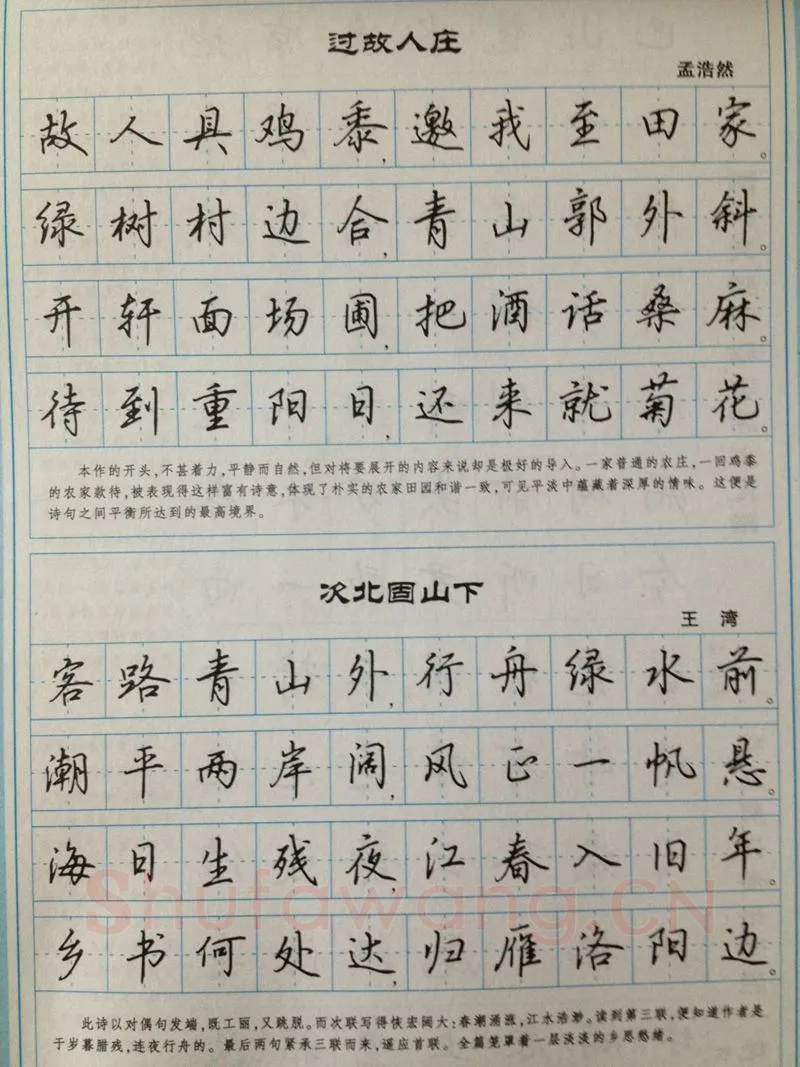 过故人庄
孟浩然
故人具鸡黍，邀我至田家。
绿树村边合，青山郭外斜。
开轩面场圃，把酒话桑麻。
待到重阳日，还来就菊花。
本作的开头，不甚着力，平静而自然，但对将要展开的内容来说却是极好的导入。一家普通的农庄，一回鸡黍
的农家款待，被表现得这样富有诗意，体现了朴实的农家田园和谐一致，可见平淡中蕴藏着深厚的情味。这便是
诗句之间平衡所达到的最高境界。
次北固山下
王 湾
客路青山外，行舟绿水前。
潮平两岸阔，风正一帆悬。
海日生残夜，江春入旧年。
Shufawang.CN
乡书何处达，归雁洛阳边。
此诗以对偶句发端，既工丽，又跳脱。而次联写得恢宏阔大：春潮涌涨，江水浩渺。读到第三联，便知道作者是
于岁暮腊残，连夜行舟的。最后两句紧承三联而来，遥应首联。全篇笼罩着一层淡淡的乡思愁绪。